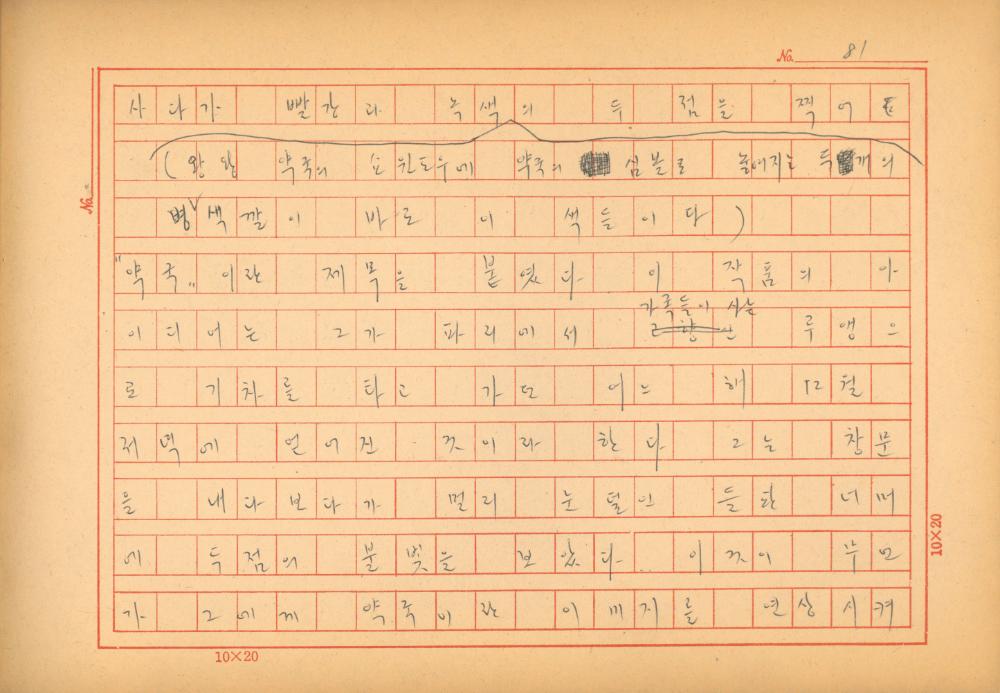 No. 81
사다가 빨간과 녹색의 두 점을 찍어
(왕왕 약국의 쇼윈도우에 약국의 심볼로 놓여지는 두 개의
병 색깔이 바로 이 색들이다)
"약국"이란 제목을 붙였다. 이 작품의 아
가족들이 사는
이디어는 그가 파리에서 고향인 루앵으
로 기차를 타고 가던 어느 해 12월
저녁에 얻어진 것이라 한다. 그는 창문
을 내다보다가 멀리 눈덮인 들판 너머
에 두점의 불빛을 보았다. 이것이 무언
가 그에게 약국이란 이미지를 연상시켜
No.
10×20
10×20